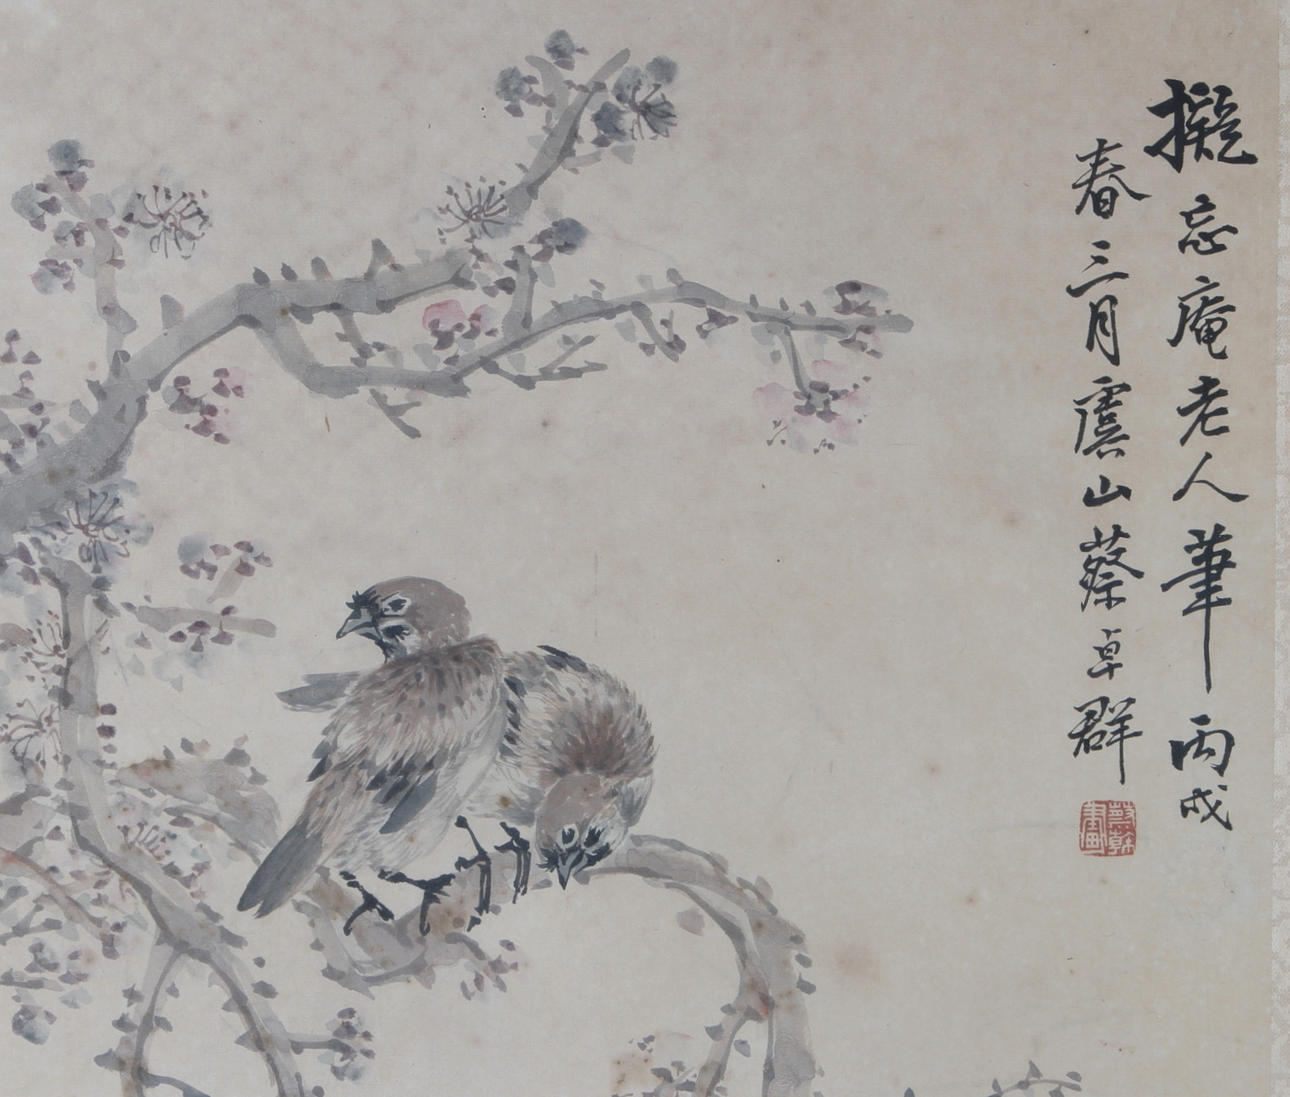 擬忘庵老人筆丙戌
春三月虞山蔡卓群